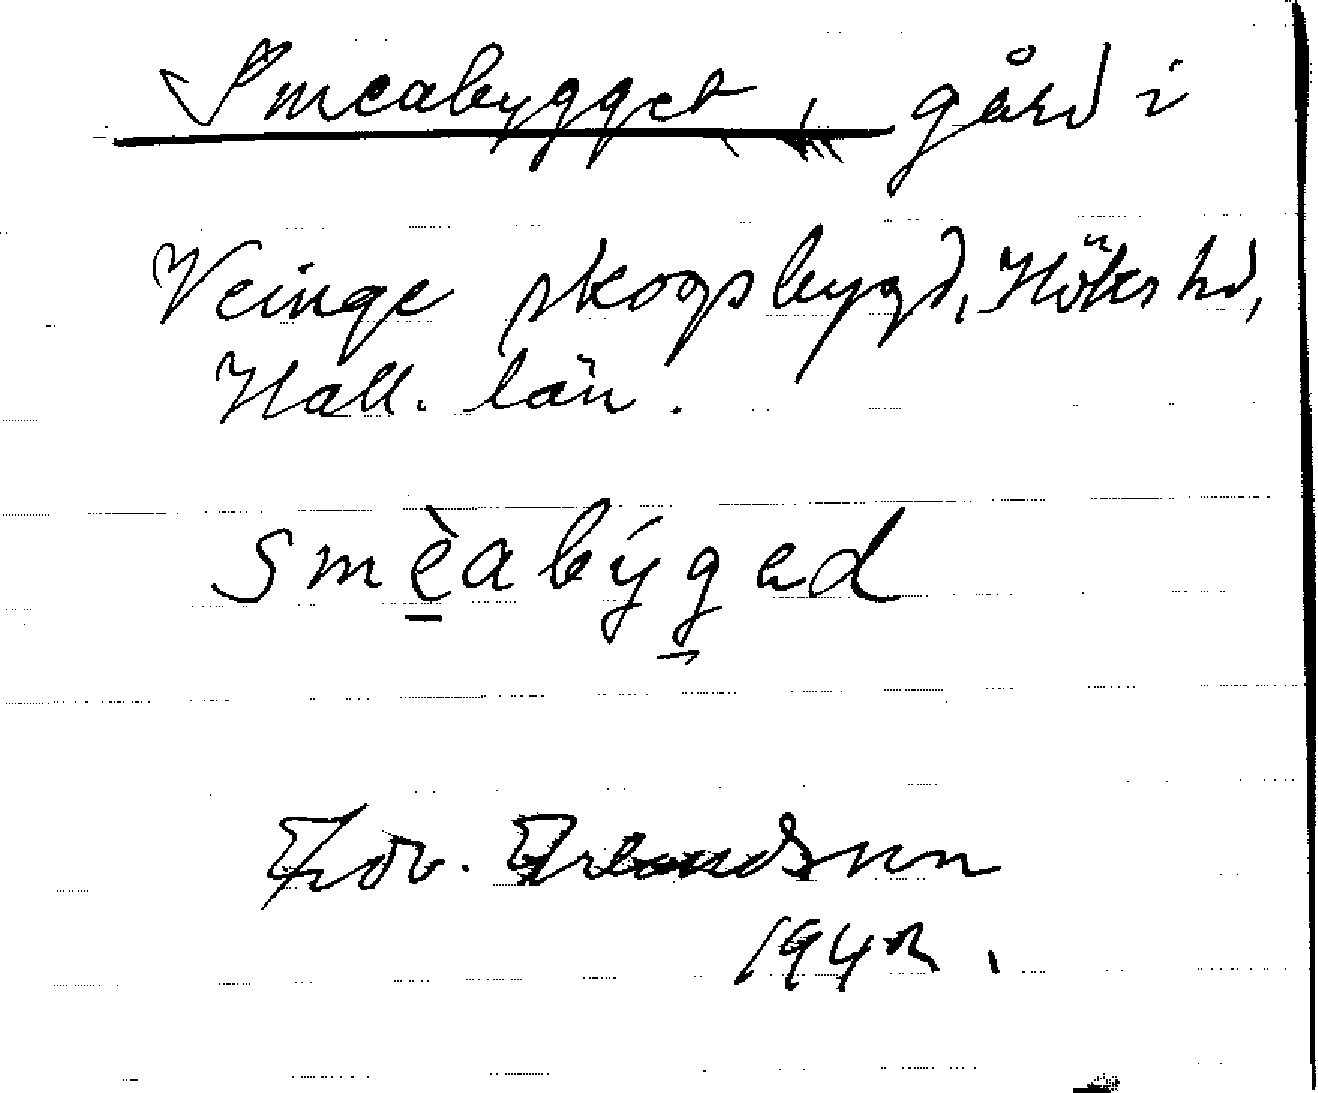 Smeabygget, gård i
Veinge skogsbygd, Höks hd,
Hall. län.
smèabýged
Edv. Erlandsson
1942.